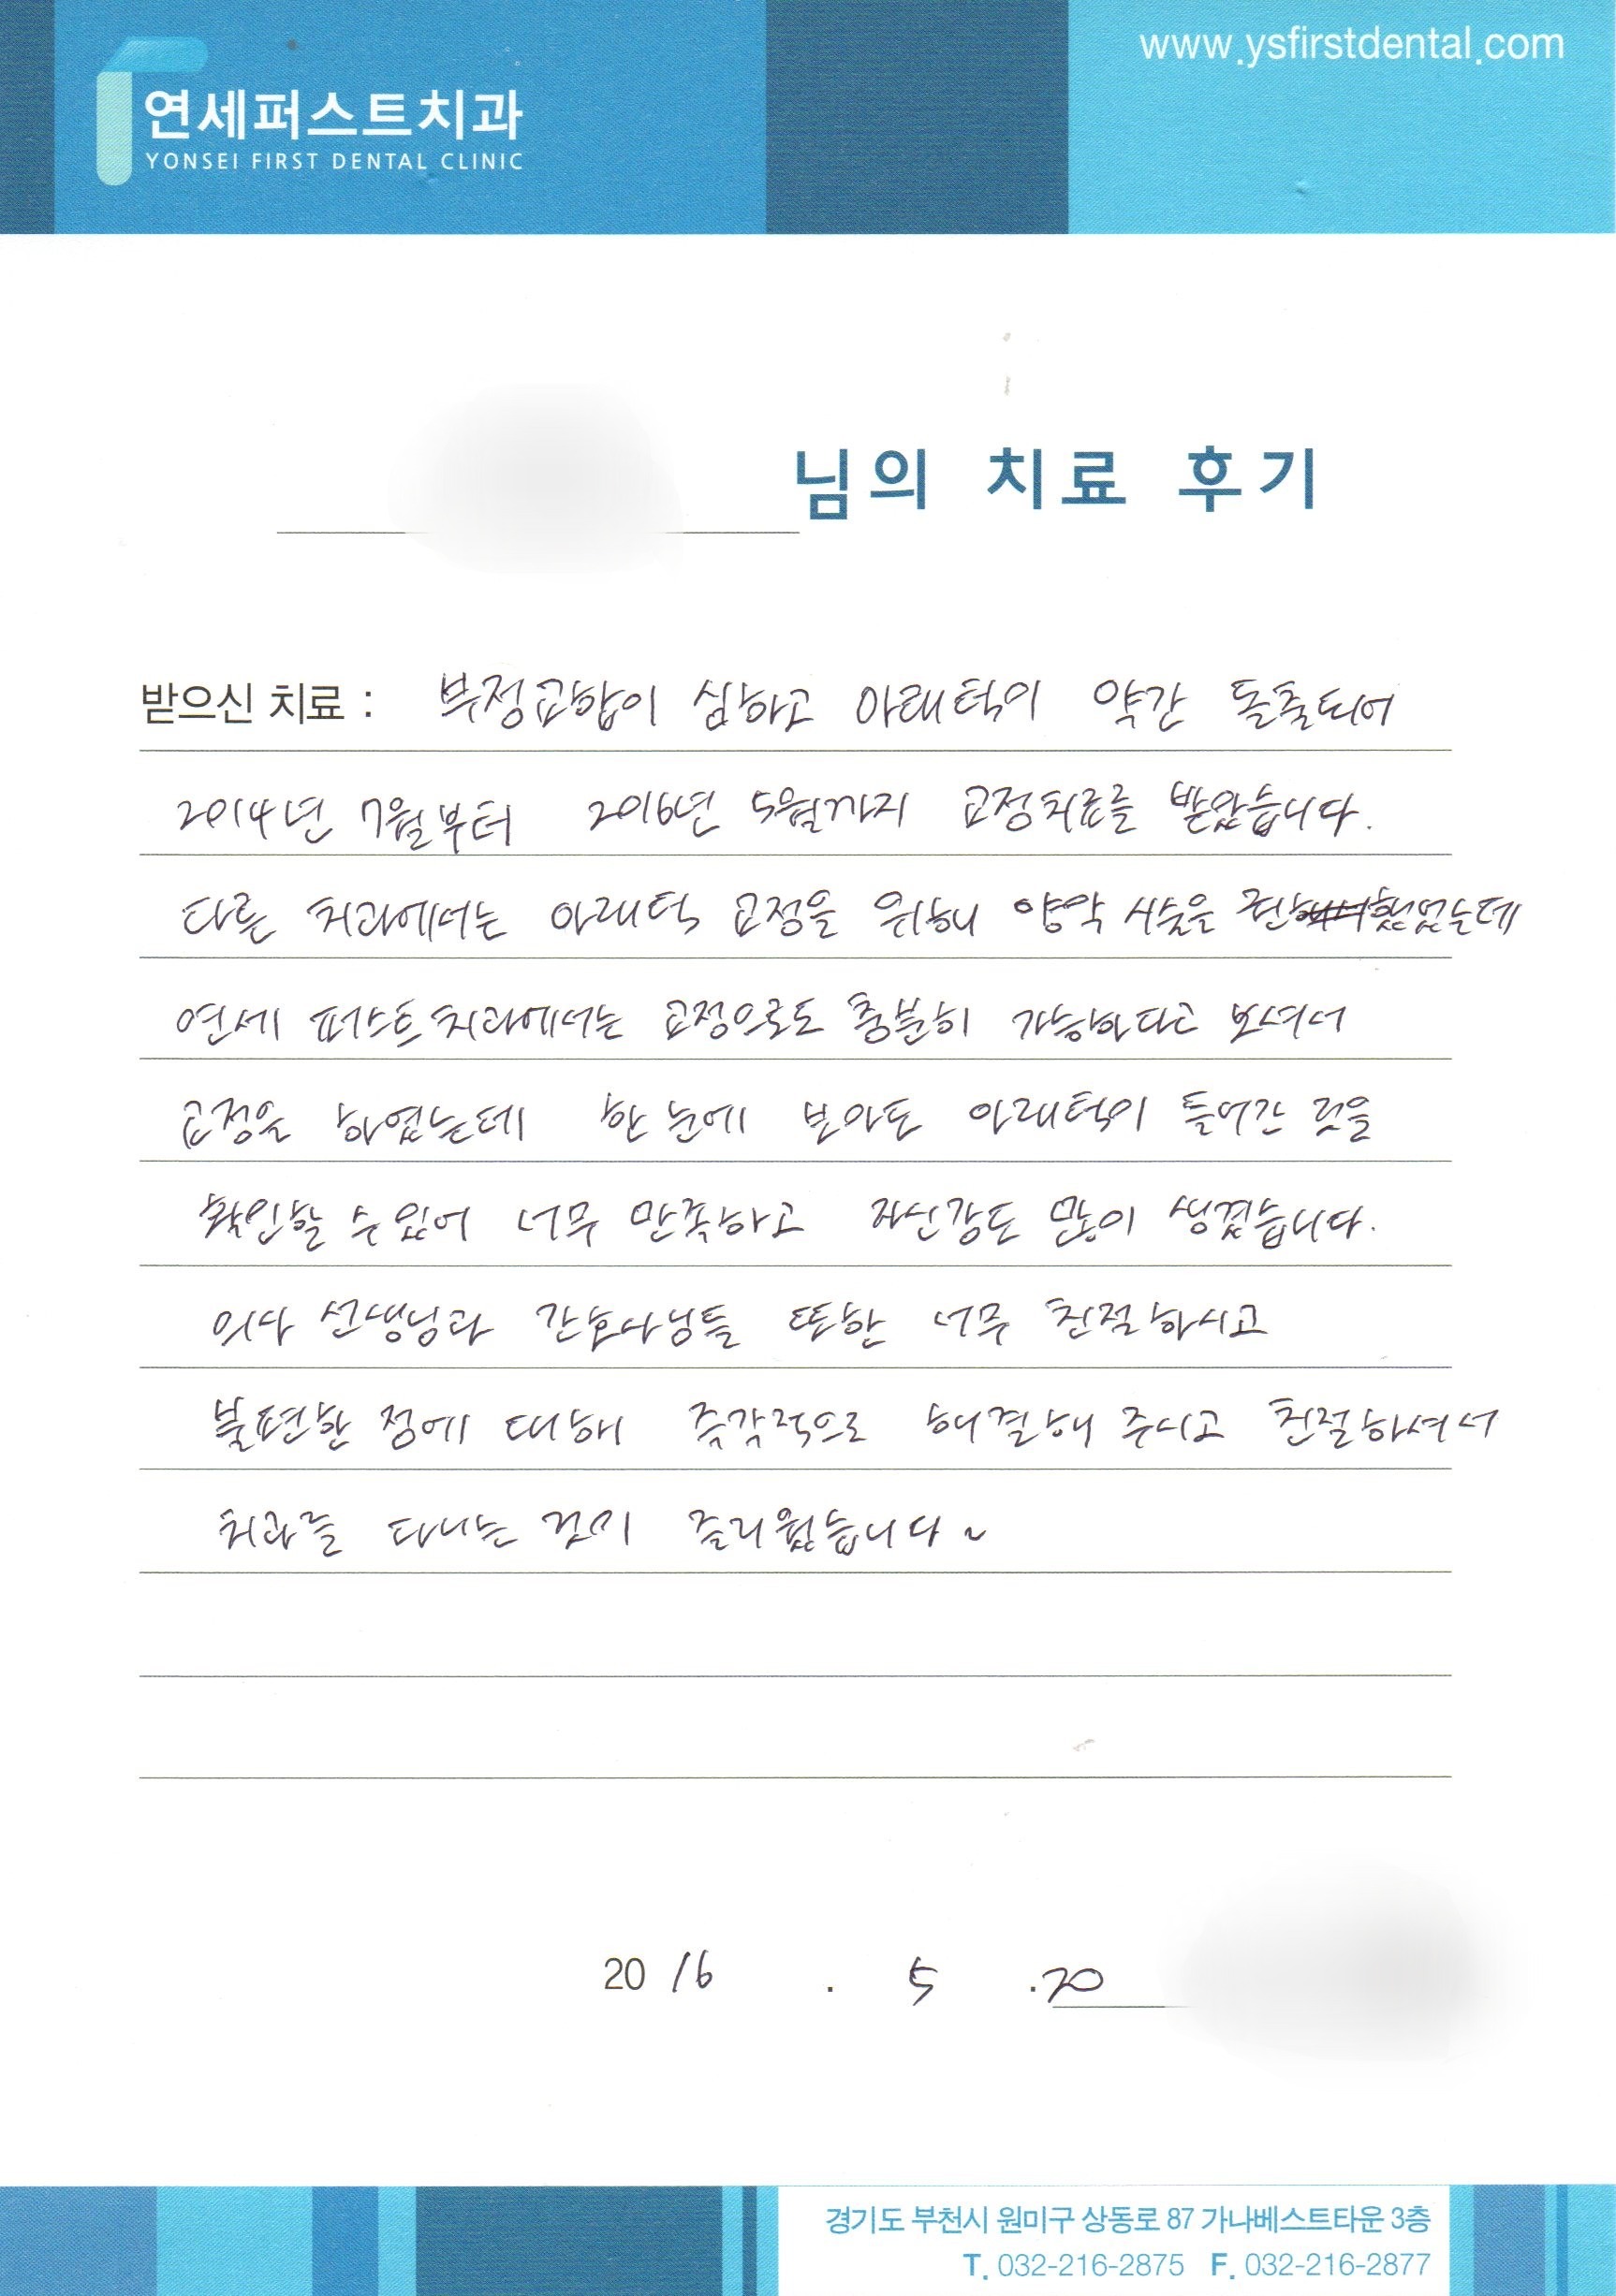 연세퍼스트치과
YONSEI FIRST DENTAL CLINIC
www.ysfirstdental.com
님의 치료 후기
받으신 치료 : 부정교합이 심하고 아래턱이 약간 돌출되어
2014년 7월부터 2016년 5월까지 교정치료를 받았습니다.
다른 치과에서는 아래턱 교정을 위해 양악 시술을 권했었는데
연세 퍼스트 치과에서는 교정으로도 충분히 가능하다고 보셔서
교정을 하였는데 한 눈에 보아도 아래턱이 들어간 것을
확인할 수 있어 너무 만족하고 자신감도 많이 생겼습니다.
의사 선생님과 간호사님들 또한 너무 친절하시고
불편한 점에 대해 즉각적으로 해결해 주시고 친절하셔서
치과를 다니는 것이 즐거웠습니다~
20 16 . 5 . 20
경기도 부천시 원미구 상동로 87 가나베스트타운 3층
T. 032-216-2875 F. 032-216-2877